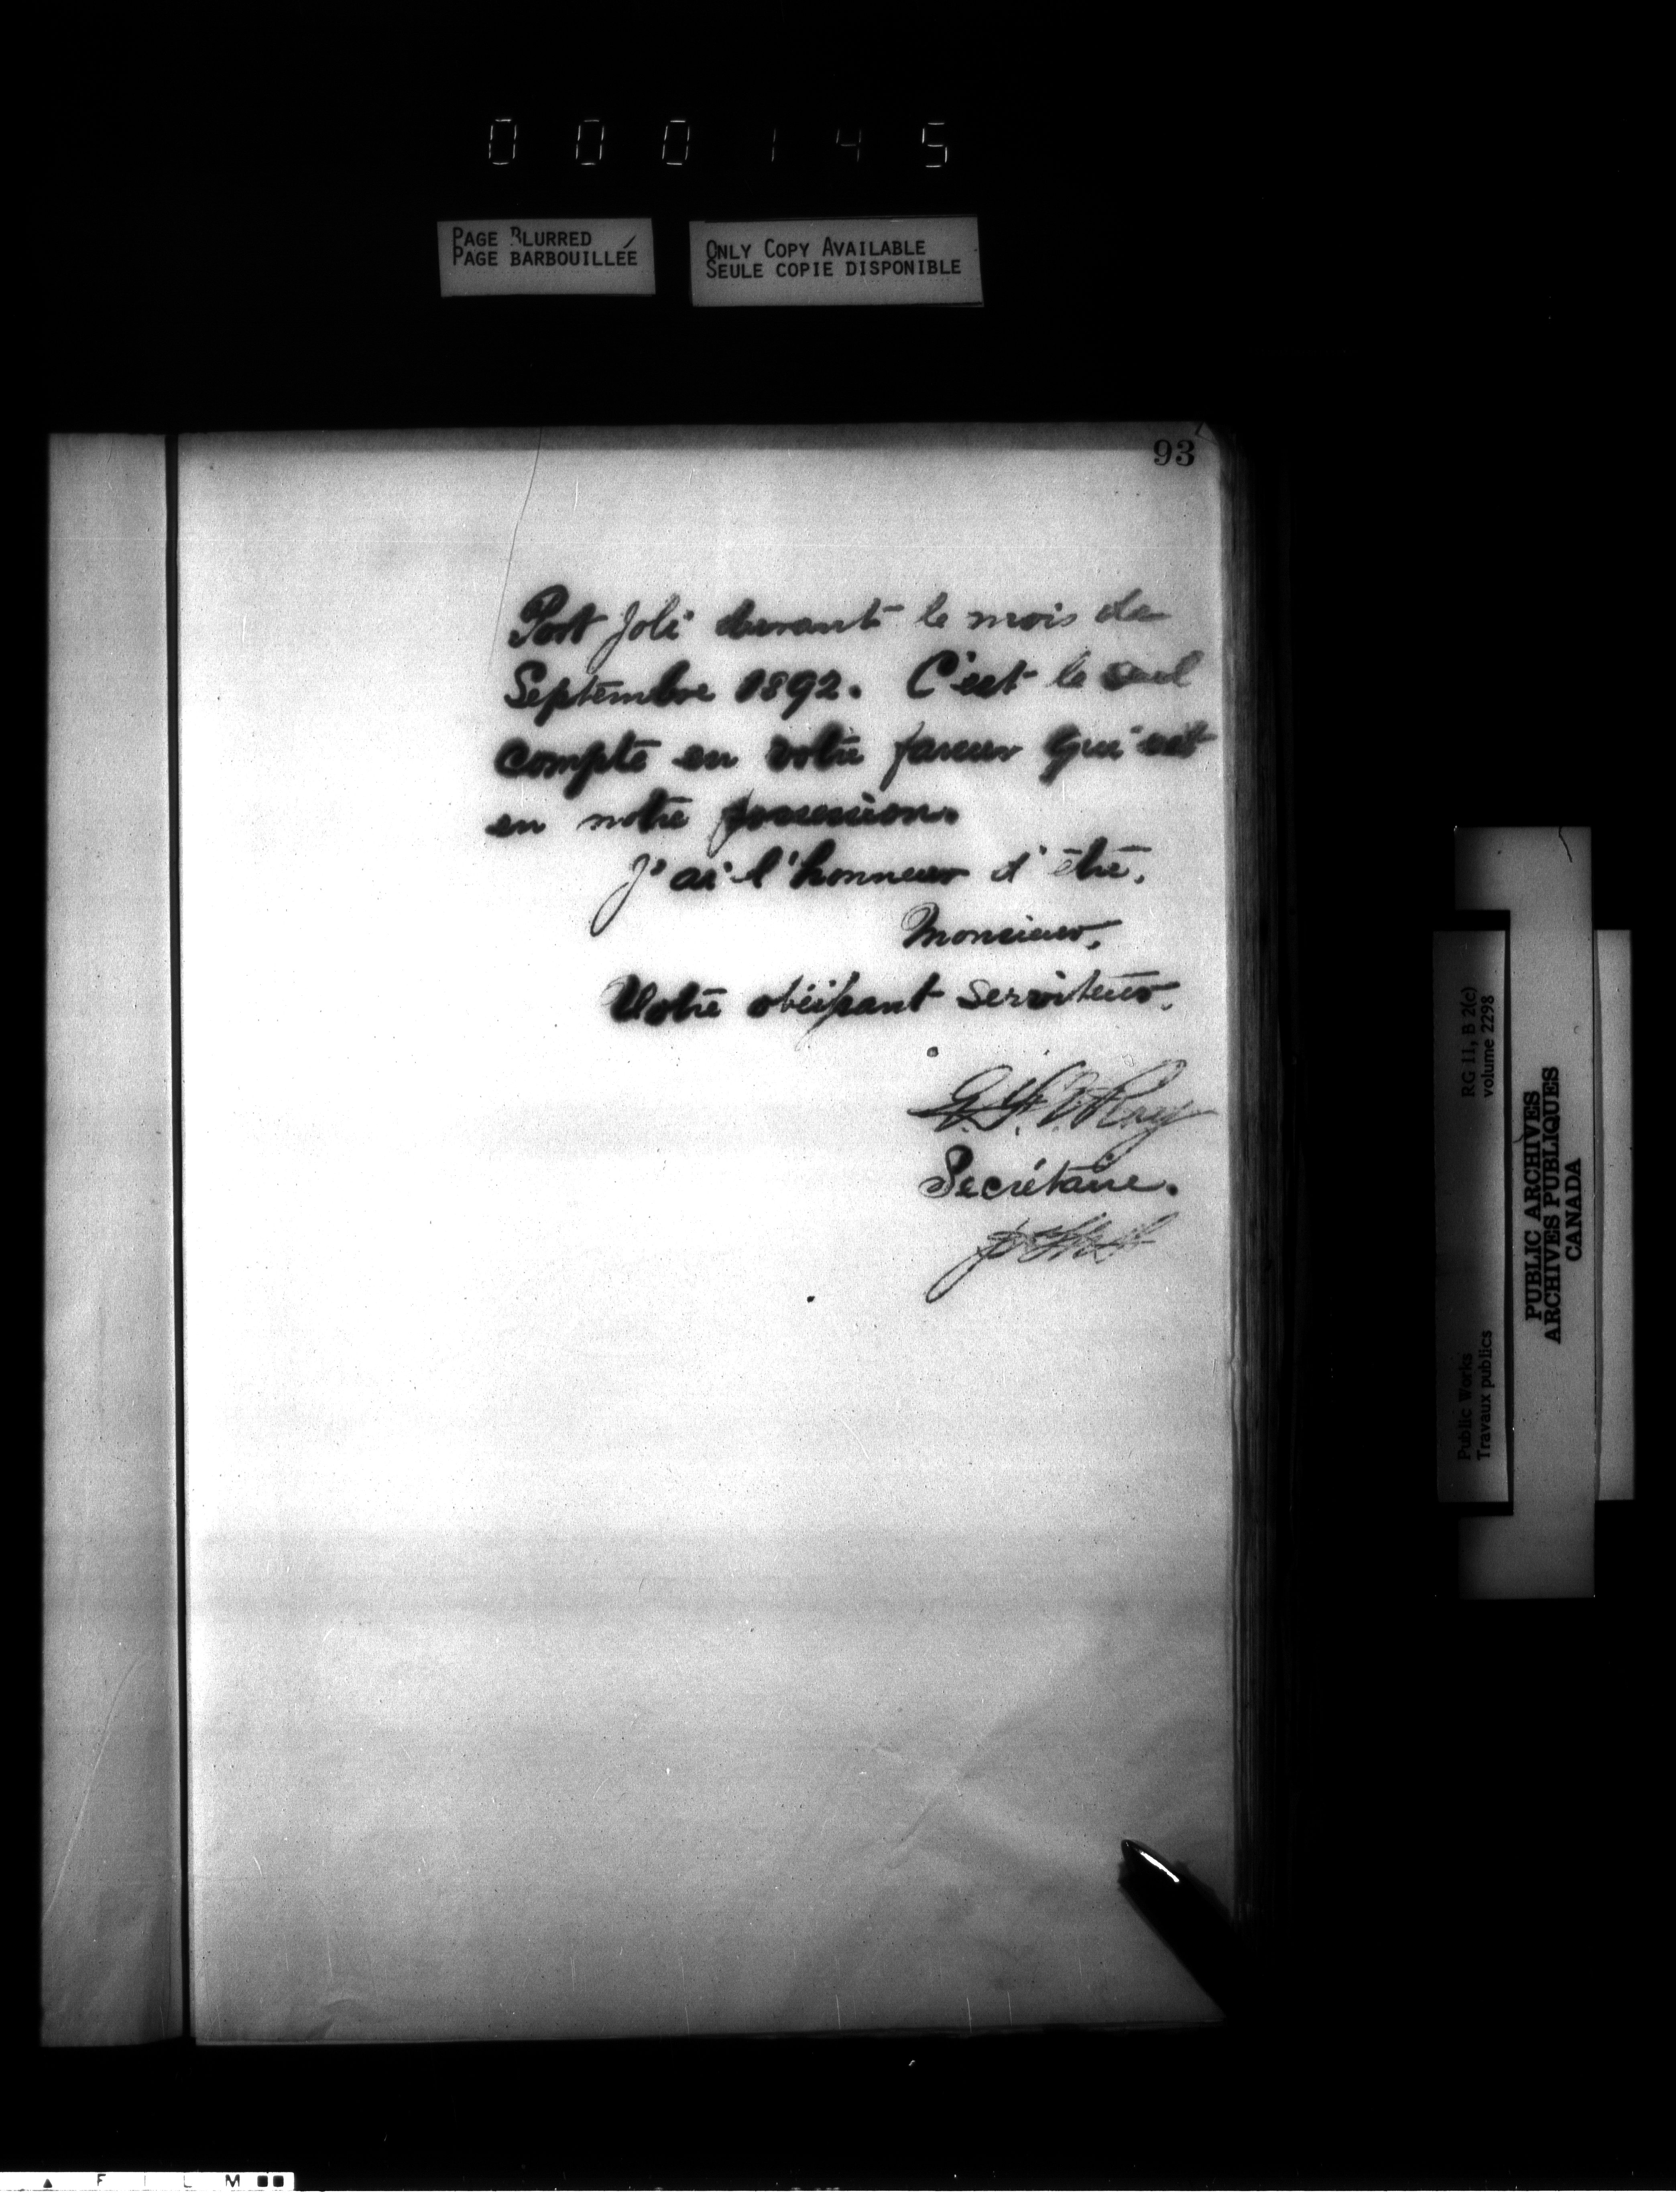 000145
PAGE BLURRED
PAGE BARBOUILLÉE
ONLY COPY AVAILABLE
SEULE COPIE DISPONIBLE
93
Port Joli durant le mois de
Septembre 1892. C'est le seul
compte en votre faveur qui est
en notre possession.
J'ai l'honneur d'être,
Monsieur,
Votre obéissant serviteur,
Roy
Secrétaire.
RG 11, B 2(c)
volume 2298
Public Works
Travaux publics
PUBLIC ARCHIVES
ARCHIVES PUBLIQUES
CANADA
FILM